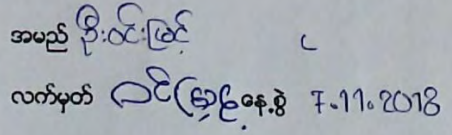 အမည် ဦးဝင်းမြင့်
လက်မှတ် နေ့စွဲ 7.11.2018